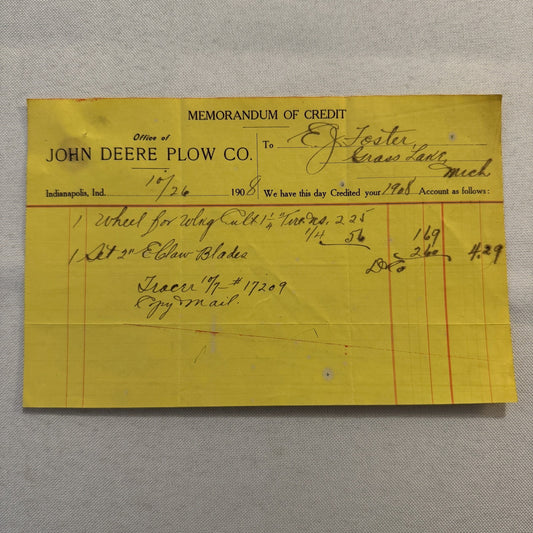 MEMORANDUM OF CREDIT
Office of
JOHN DEERE PLOW CO.
To E J Foster,
Grass Lake,
Mich
Indianapolis, Ind. 10/26 1908 We have this day Credited your 1908 Account as follows:
1 Wheel for Wlng Cult 1 1/4" Tire 2 25
1/4 56 169
1 Set 2" E Claw Blades 260 4.29
10/7 # 17209
Copy Mail